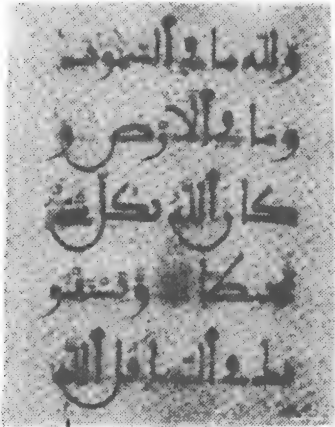 ولله ما في السموت
وما في الارض و
كان الله بكل شي
محيطا ويستفتو
نك في النسا قل الله